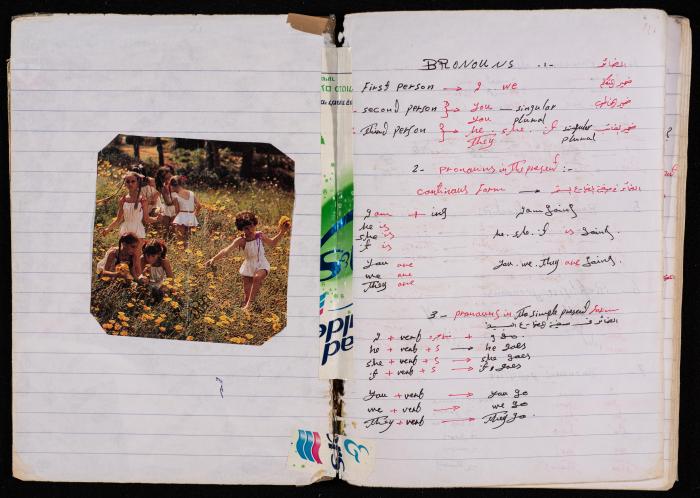 BRONOUNS -1- الضمائر
First person → I we ضمير المتكلم
second person }→ you — singular ضمير المخاطب
you plural
Third person }→ he. she. it singular ضمير الغائب
They plural
2- pronouns in the present :-
continous form →
I am + ing I am Going
he is
she is he. she. it is Going.
it is
You are
we are You. we. They are Going.
They are
3- pronouns in the simple present form
I + verb + I go.
he + verb + s → he goes
she + verb + s → she goes
it + verb + s → it goes
You + verb → you go
we + verb → we go
They + verb → They go.